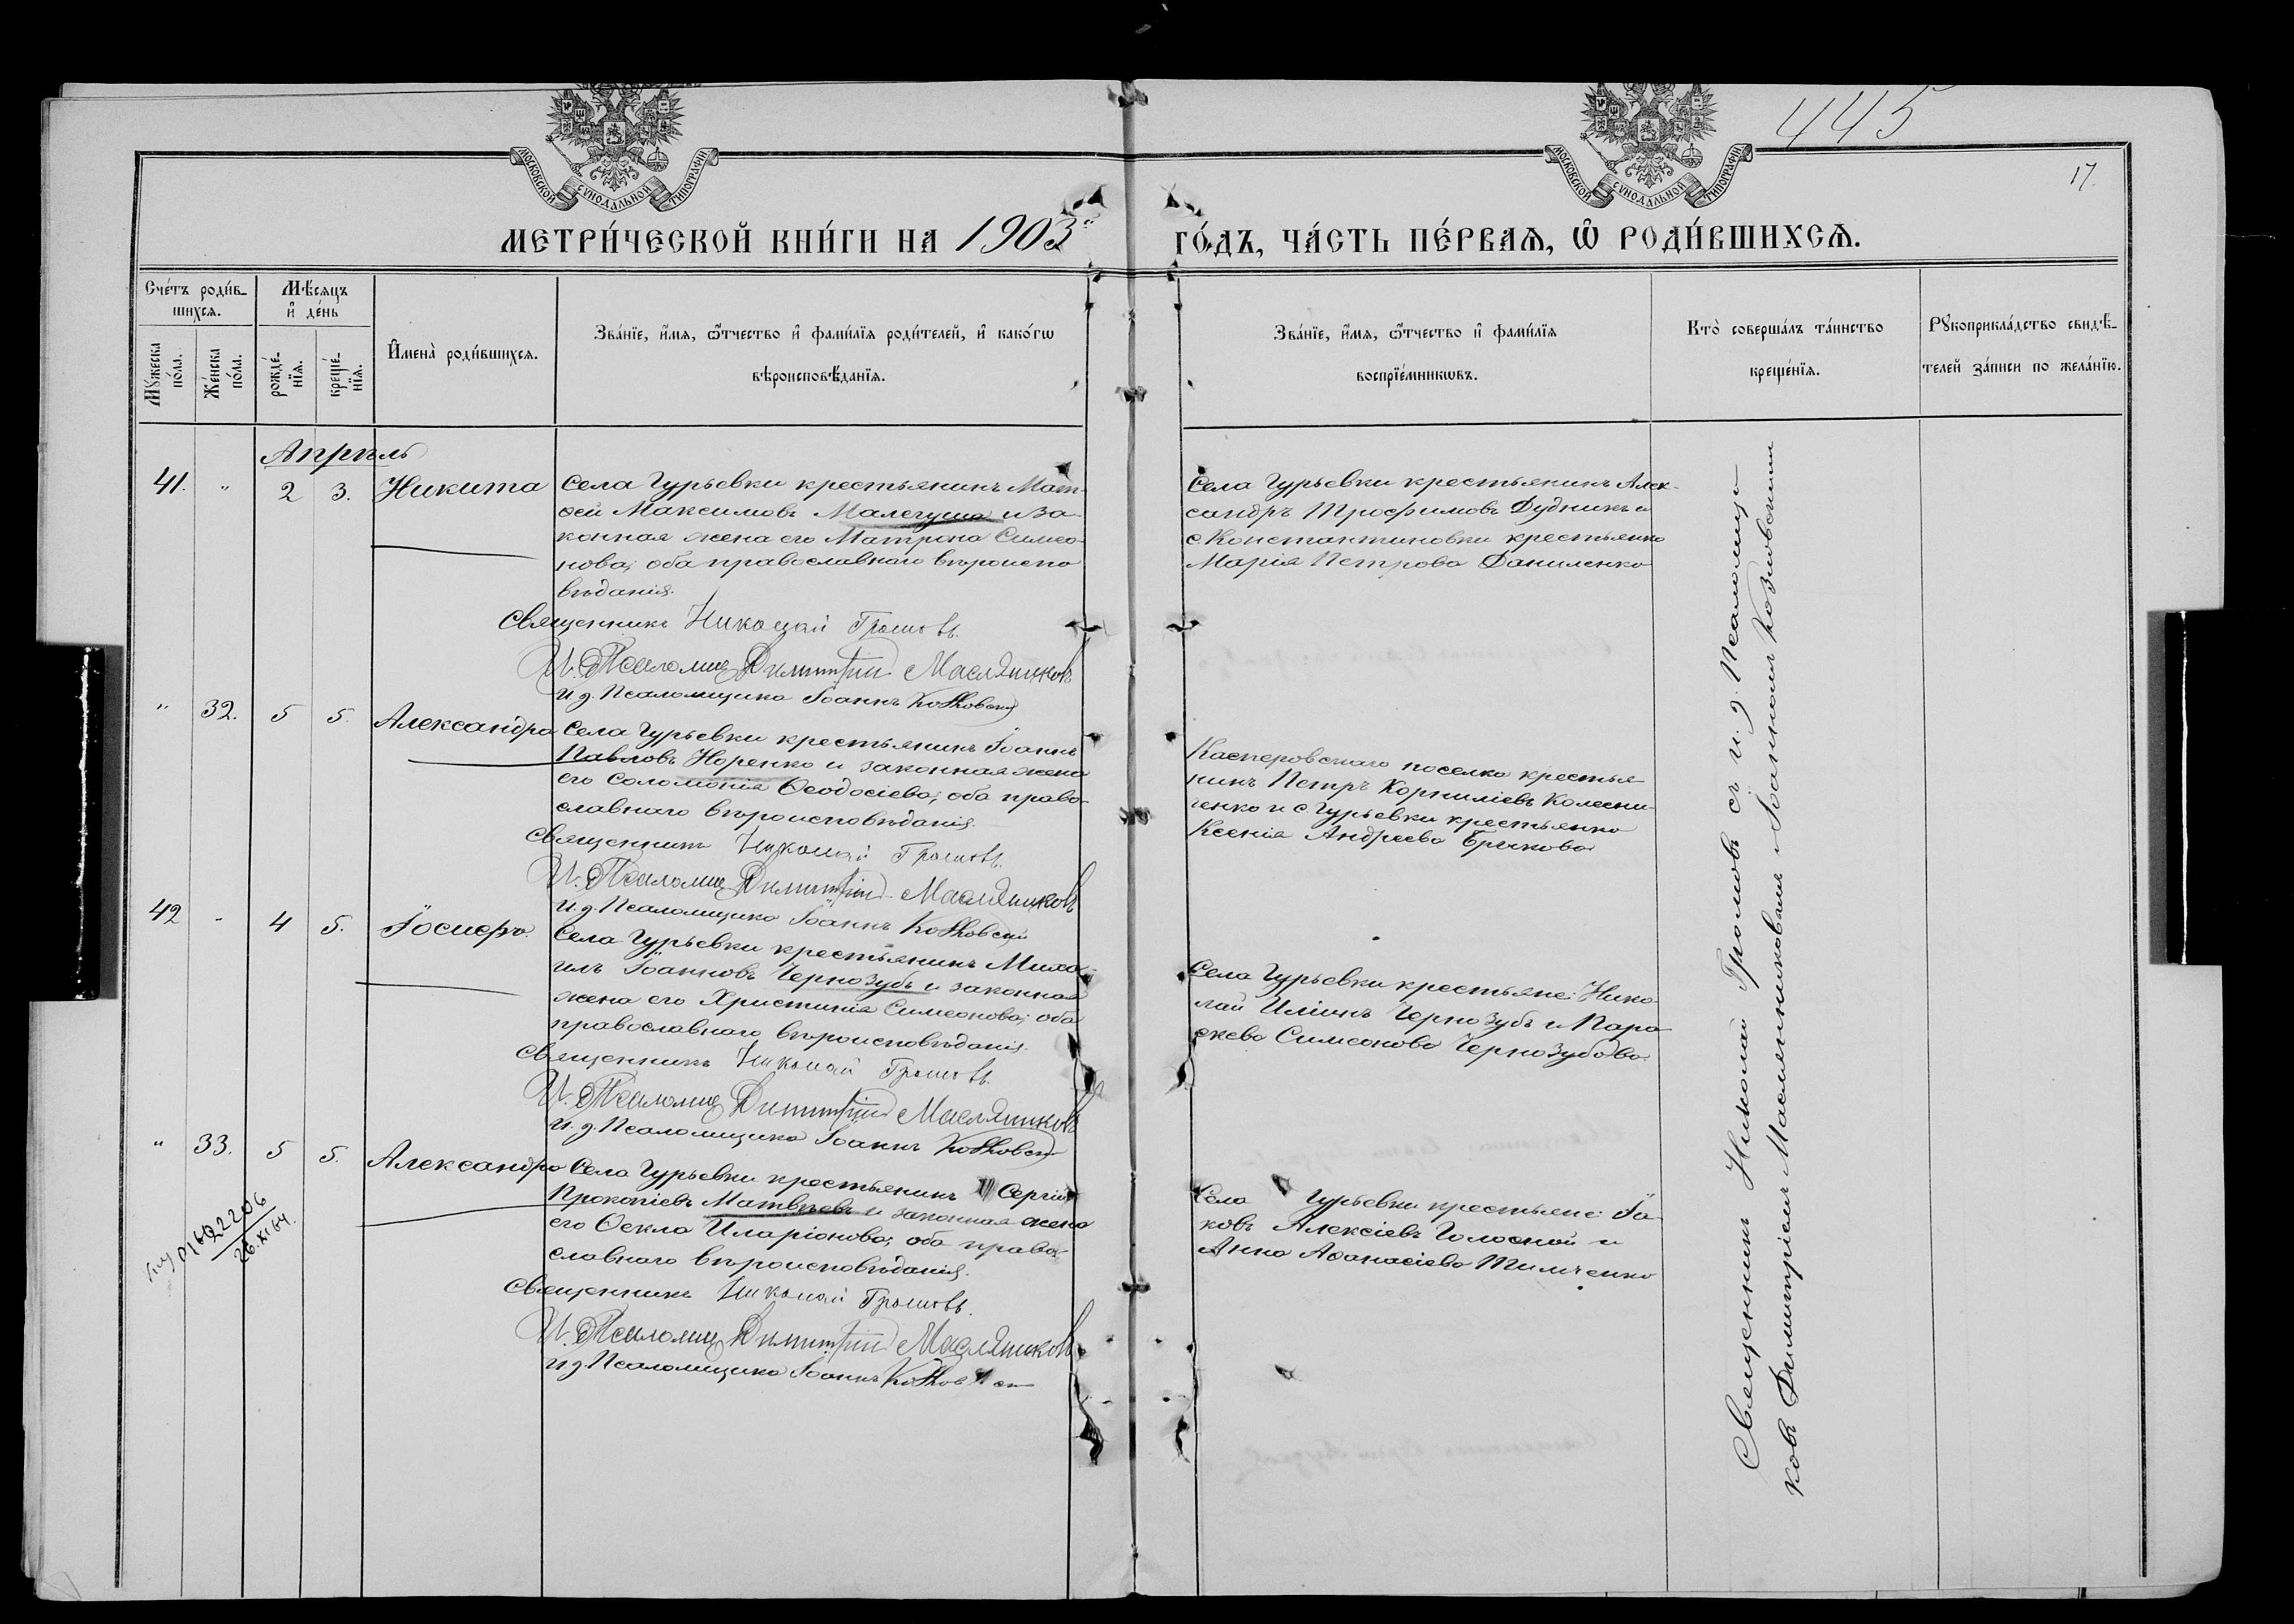 445
17.
МОСКОВСКОЙ СѴНОДАЛЬНОЙ ТИПОГРАФІИ
МОСКОВСКОЙ СѴНОДАЛЬНОЙ ТИПОГРАФІИ
МЕТРИ́ЧЕСКОЙ КНИ́ГИ НА 1903й ГО́ДЪ, ЧА́СТЬ ПЕ́РВАѦ, Ѡ҆ РОДИ́ВШИХСѦ.
Сче́тъ роди́в-
шихсѧ.
Мꙋ́жеска по́ла.
Же́нска по́ла.
Мѣ́сѧцъ
и҆ де́нь
рожде́-нїѧ.
креще́-нїѧ.
И҆мена̀ роди́вшихсѧ.
Зва́нїе, и҆́мѧ, ѻ҆́тчество и҆ фами́лїѧ роди́телей, и҆ како́гѡ
вѣроисповѣ́данїѧ.
Зва́нїе, и҆́мѧ, ѻ҆́тчество и҆ фами́лїѧ
воспрїе́мникѡвъ.
Кто̀ соверша́лъ та́инство
креще́нїѧ.
Рꙋкоприкла́дство свидѣ́-
телей за́писи по жела́нїю.
Апрѣль
41. " 2 3. Никита
Села Гурьевки крестьянинъ Мат-
ѳей Максимовъ Малегуша и за-
конная жена его Матрона Симео-
нова; оба православнаго вѣроиспо
вѣданія.
Священникъ Николай Громовъ.
И. Псаломщ Димитрій Маслянников
И. д. Псаломщика Іоаннъ Козловскій
Села Гурьевки крестьянинъ Алек-
сандръ Трофимовъ Дудникъ и
с. Константиновки крестьянка
Марія Петрова Даниленко
" 32. 5 5. Александра
Села Гурьевки крестьянинъ Іоаннъ
Павловъ Норенко и законная жена
его Соломонія Ѳеодосіева; оба право-
славнаго вѣроисповѣданія.
Священникъ Николай Громовъ.
И. Псаломщ Димитрій Маслянников
И. д. Псаломщика Іоаннъ Козловскій
Касперовскаго поселка крестья-
нинъ Петръ Корниліевъ Колесни-
ченко и с. Гурьевки крестьянка
Ксенія Андреева Бычкова
42 " 4 5. Іосифъ.
Села Гурьевки крестьянинъ Миха-
илъ Іоанновъ Чернозубъ и законная
жена его Христинія Симеонова; оба
православнаго вѣроисповѣданія.
Священникъ Николай Громовъ.
И. Псаломщ Димитрій Маслянников
И. д. Псаломщика Іоаннъ Козловскій
Села Гурьевки крестьяне: Нико-
лай Иліинъ Чернозубъ и Пара-
скева Симеонова Чернозубова.
" 33. 5 5. Александра
Села Гурьевки крестьянинъ Сергій
Прокопіевъ Матвѣевъ и законная жена
его Ѳекла Иларіонова; оба право-
славнаго вѣроисповѣданія.
Священникъ Николай Громовъ.
И. Псаломщ Димитрій Маслянников
И д. Псаломщика Іоаннъ Козловскі
Села Гурьевки крестьяне: Іа-
ковъ Алексіевъ Голосной и
Анна Аѳанасіева Тимченко
26.XI 64.
Священникъ Николай Громовъ съ и. д. Псаломщи-
ковъ Димитріемъ Маслянниковымъ и Іоанномъ Козловскимъ